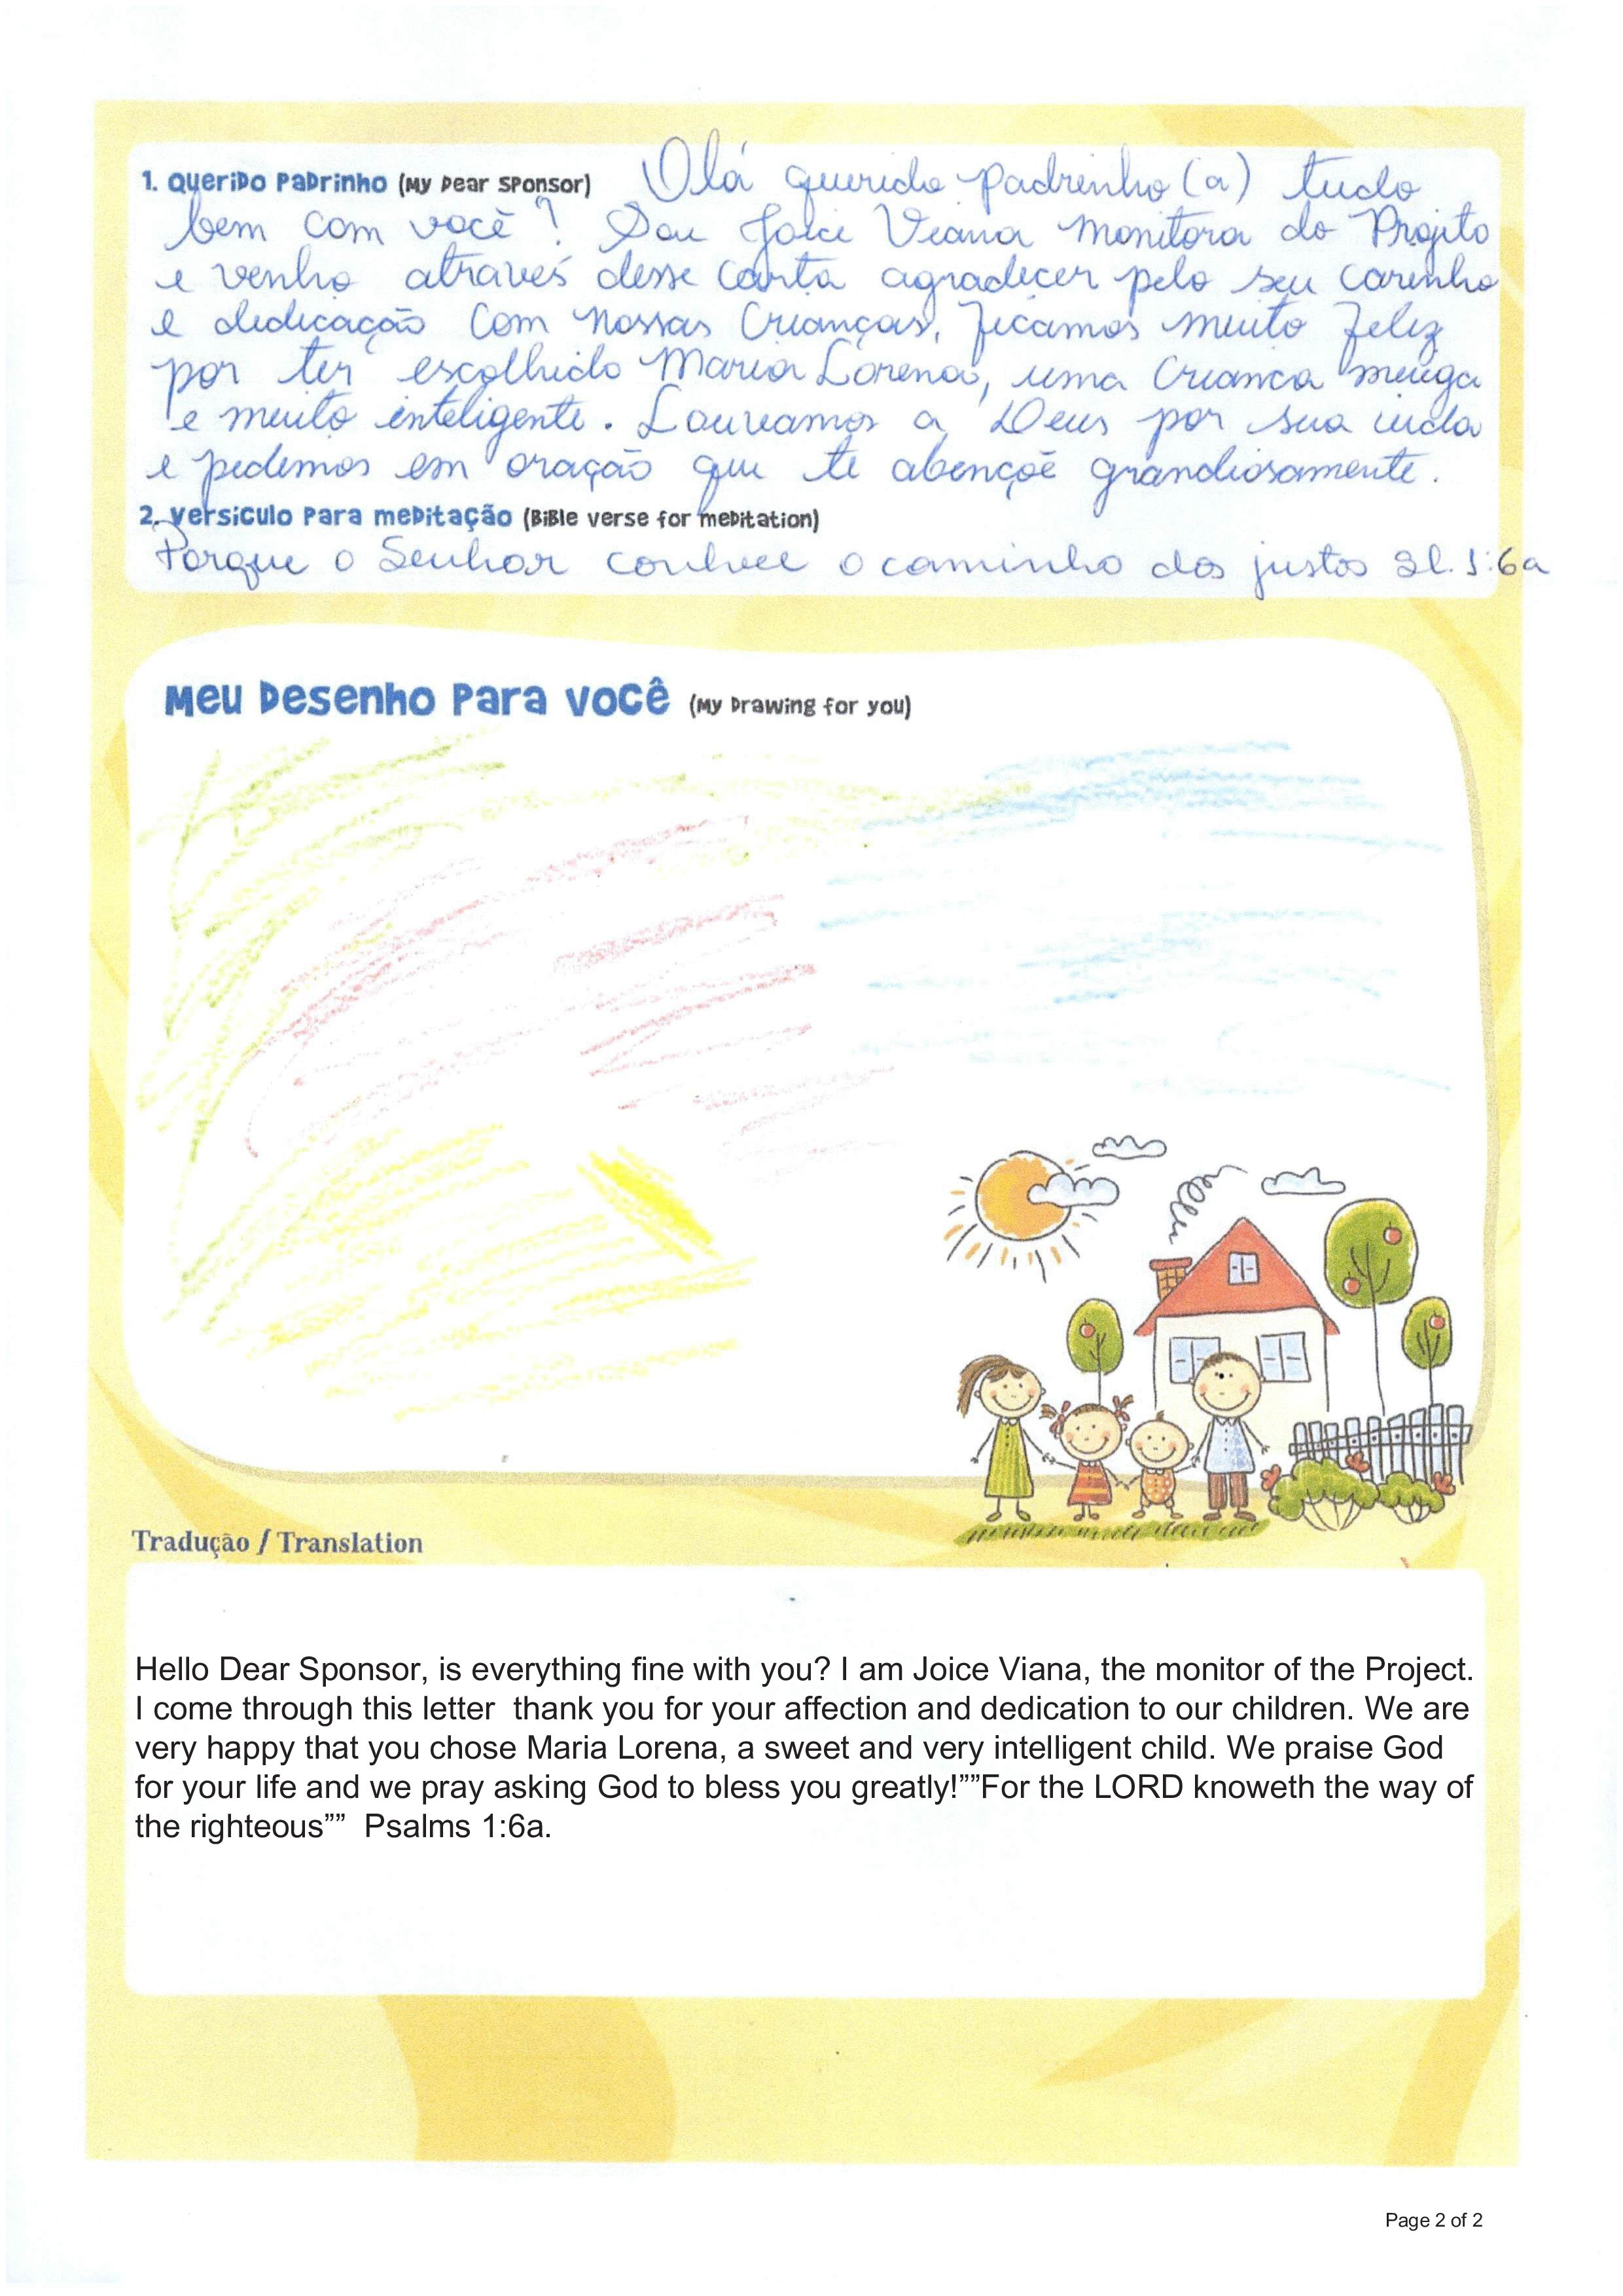 1. Querido Padrinho (My Dear Sponsor) Olá querido padrinho (a) tudo
bem com você? Sou Joice Viana monitora do Projeto
e venho através desse carta agradecer pelo seu carinho
e dedicação com nossas crianças, ficamos muito feliz
por ter escolhido Maria Lorena, uma criança meiga
e muito inteligente. Louvamos a Deus por sua vida
e pedimos em oração que te abençoê grandiosamente.
2. Versículo para meditação (Bible verse for meditation)
Porque o Senhor conhece o caminho dos justos Sl. 1:6a
Meu Desenho Para Você (My Drawing for you)
Tradução / Translation
Hello Dear Sponsor, is everything fine with you? I am Joice Viana, the monitor of the Project.
I come through this letter  thank you for your affection and dedication to our children. We are
very happy that you chose Maria Lorena, a sweet and very intelligent child. We praise God
for your life and we pray asking God to bless you greatly!””For the LORD knoweth the way of
the righteous””  Psalms 1:6a.
Page 2 of 2